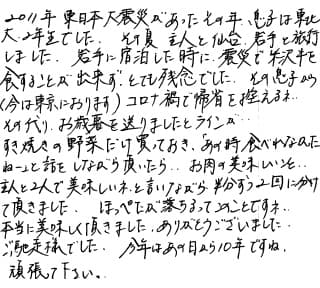 2011年 東日本大震災があったその年、息子は東北
大・2年生でした。その夏 主人と仙台、岩手と旅行
しました。岩手に宿泊した時に、震災で米沢牛を
食することが出来ず、とても残念でした。その息子から
(今は東京におります) コロナ禍で帰省を控えるネ、
その代り、お歳暮を送りましたとラインが…
すき焼きの野菜だけ買っておき、「あの時、食べれなかったん
ねー」と話をしながら頂いたら、お肉の美味しいこと…
主人と2人で美味しいネ、と言いながら 半分ずつ2回に分け
て頂きました。ほっぺたが落ちるってこのことですネ…
本当に美味しく頂きました。ありがとうございました。
ご馳走様でした。今年はあの日から10年ですね。
頑張って下さい。